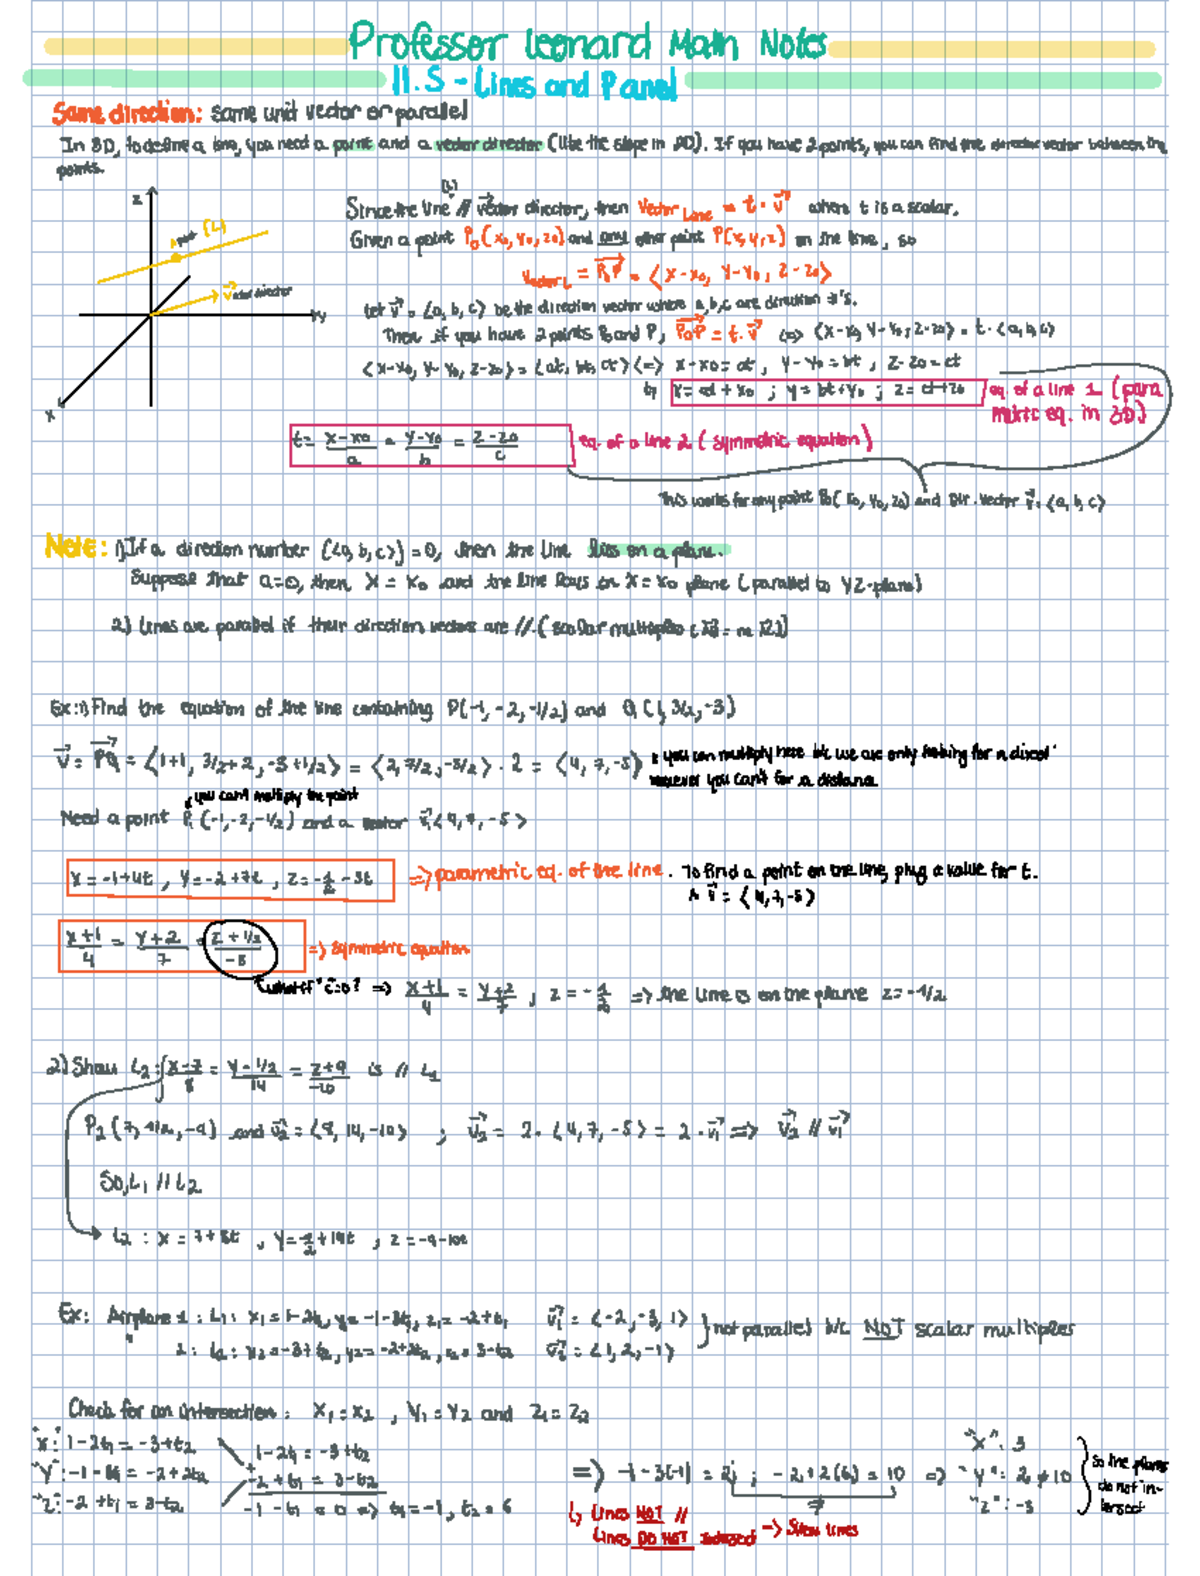 Professor Leonard Math Notes
11.5 - Lines and Panel
Same direction: same unit vector or parallel
In 3D, to define a line, you need a point and a vector director (like the slope in 2D). If you have 2 points, you can find the director vector between the
points.
z
(L)
y
x
Since the line // vector director, then Vector Line = t · v⃗ where t is a scalar.
Given a point P₀(x₀, y₀, z₀) and any other point P(x, y, z) on the line, so
Vector L = P₀P⃗ = ⟨x-x₀, y-y₀, z-z₀⟩
Let v⃗ = ⟨a, b, c⟩ be the direction vector where a,b,c are direction #'s.
Then if you have 2 points P₀ and P, P₀P⃗ = t·v⃗ <=> ⟨x-x₀, y-y₀, z-z₀⟩ = t·⟨a, b, c⟩
⟨x-x₀, y-y₀, z-z₀⟩ = ⟨at, bt, ct⟩ <=> x-x₀ = at, y-y₀ = bt, z-z₀ = ct
x = at + x₀ ; y = bt + y₀ ; z = ct + z₀ eq. of a line 1 (para
metric eq. in 3D)
t = (x-x₀)/a = (y-y₀)/b = (z-z₀)/c eq. of a line 2 (symmetric equation)
This works for any point P₀(x₀, y₀, z₀) and Dir. Vector v⃗ = ⟨a, b, c⟩
Note: 1) If a direction number (⟨a, b, c⟩) = 0, then the line lies on a plane.
Suppose that a=0, then x = x₀ and the line lays on x = x₀ plane (parallel to YZ-plane)
2) Lines are parallel if their direction vectors are //. (scalar multiples
Ex: 1) Find the equation of the line containing P(-1, -2, -1/2) and Q(1, 3/2, -3)
v⃗ = PQ⃗ = ⟨1+1, 3/2+2, -3+1/2⟩ = ⟨2, 7/2, -5/2⟩ · 2 = ⟨4, 7, -5⟩ you can multiply here b/c we are only looking for a direct°
however you can't for a distance
you can't multiply the point
Need a point P(-1, -2, -1/2) and a vector v⃗⟨4, 7, -5⟩
x = -1+4t, y = -2+7t, z = -1/2 -5t => parametric eq. of the line. To find a point on the line, plug a value for t.
v⃗ = ⟨4, 7, -5⟩
(x+1)/4 = (y+2)/7 = (z+1/2)/-5 => Symmetric equation
"what if" c=0? => (x+1)/4 = (y+2)/7, z = -1/2 => the line is on the plane z = -1/2
2) Show L₂: (x-7)/8 = (y-1/2)/14 = (z+9)/-10 is // L₁
P₂(7, 1/2, -9) and v₂⃗ = ⟨8, 14, -10⟩ ; v₂⃗ = 2·⟨4, 7, -5⟩ = 2·v₁⃗ => v₂⃗ // v₁⃗
So, L₁ // L₂
L₂ : x = 7+8t, y = 1/2+14t, z = -9-10t
Ex: Airplane 1 : L₁: x₁ = 1-2t₁, y₁ = -1-3t₁, z₁ = -2+t₁ v₁⃗ = ⟨-2, -3, 1⟩ not parallel b/c NOT scalar multiples
" 2 : L₂ : x₂ = -3+t₂, y₂ = -2+2t₂, z₂ = 3-t₂ v₂⃗ = ⟨1, 2, -1⟩
Check for an intersection : x₁ = x₂, y₁ = y₂ and z₁ = z₂
"x": 1-2t₁ = -3+t₂
"y": -1-3t₁ = -2+2t₂
"z": -2+t₁ = 3-t₂
1-2t₁ = -3+t₂
+ -2+t₁ = 3-t₂
-1-t₁ = 0 => t₁ = -1, t₂ = 6
=> -1-3(-1) = 2 ; -2+2(6) = 10 =>
≠
"x": 3
"y": 2 ≠ 10
"z": -3
so the planes
do not in-
tersect
↳ Lines NOT //
Lines DO NOT intersect => Skew lines